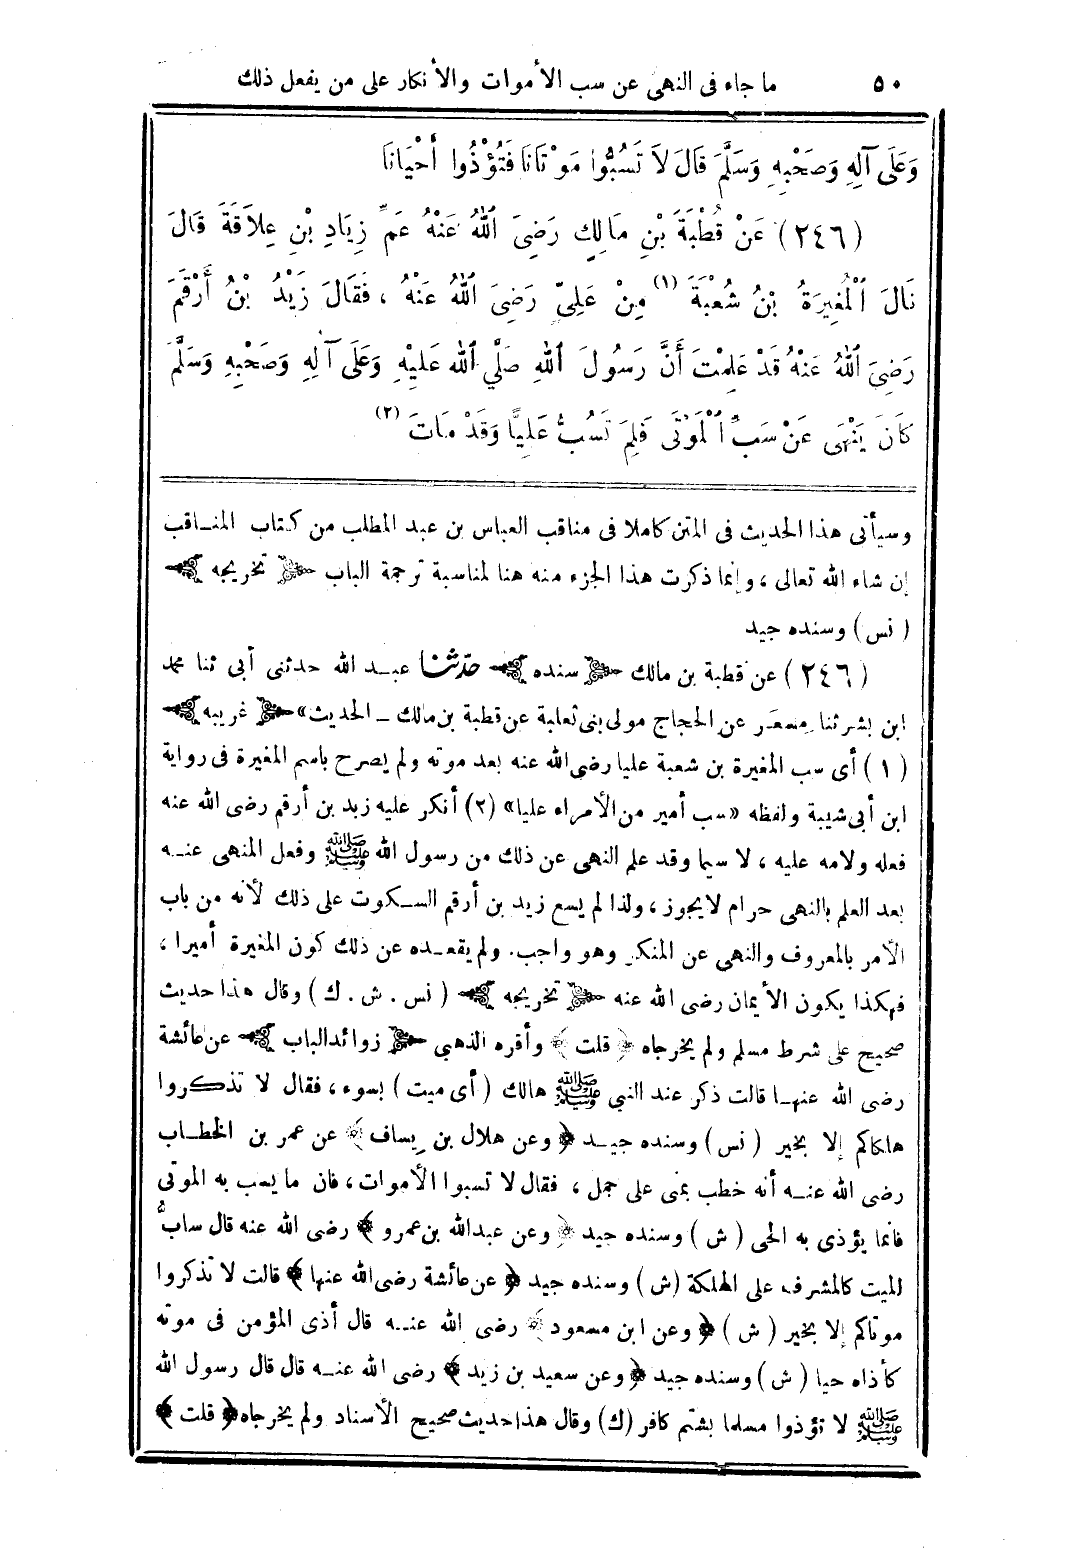 ٥٠ ما جاء فى النهى عن سب الأموات والأنكار على من يفعل ذلك
وَعَلَى آلِهِ وَصَحْبِهِ وَسَلَّمَ قَالَ لَا تَسُبُّوا مَوْتَانَا فَتُؤْذُوا أَحْيَانَا
(٢٤٦) عَنْ قُطْبَةَ بْنِ مَالِكٍ رَضِىَ اللهُ عَنْهُ عَمِّ زِيَادِ بْنِ عِلَاقَةَ قَالَ
نَالَ الْمُغِيرَةُ بْنُ شُعْبَةَ (١) مِنْ عَلِىٍّ رَضِىَ اللهُ عَنْهُ ، فَقَالَ زَيْدُ بْنُ أَرْقَمَ
رَضِىَ اللهُ عَنْهُ قَدْ عَلِمْتَ أَنَّ رَسُولَ اللهِ صَلَّى اللهُ عَلَيْهِ وَعَلَى آلِهِ وَصَحْبِهِ وَسَلَّمَ
كَانَ يَنْهَى عَنْ سَبِّ الْمَوْتَى فَلِمَ تَسُبُّ عَلِيًّا وَقَدْ مَاتَ (٢)
وسيأتى هذا الحديث فى المتن كاملا فى مناقب العباس بن عبد المطلب من كتاب المناقب
إن شاء الله تعالى ، وإنما ذكرت هذا الجزء منه هنا لمناسبة ترجمة الباب ﴿ تخريجه ﴾
(نس) وسنده جيد
(٢٤٦) عن قطبة بن مالك ﴿ سنده ﴾ حدّثنا عبد الله حدثنى أبى ثنا محمد
ابن بشر ثنا مسعَر عن الحجاج مولى بنى ثعلبة عن قطبة بن مالك ــ الحديث» ﴿ غريبه ﴾
(١) أى سب المغيرة بن شعبة عليا رضى الله عنه بعد موته ولم يصرح باسم المغيرة فى رواية
ابن أبى شيبة ولفظه «سب أمير من الأمراء عليا» (٢) أنكر عليه زيد بن أرقم رضى الله عنه
فعله ولامه عليه ، لا سيما وقد علم النهى عن ذلك من رسول الله ﷺ وفعل المنهى عنه
بعد العلم بالنهى حرام لا يجوز ، ولذا لم يسع زيد بن أرقم السكوت على ذلك لأنه من باب
الأمر بالمعروف والنهى عن المنكر وهو واجب. ولم يقعده عن ذلك كون المغيرة أميرا ،
فهكذا يكون الأيمان رضى الله عنه ﴿ تخريجه ﴾ (نس . ش . ك) وقال هذا حديث
صحيح على شرط مسلم ولم يخرجاه ﴿ قلت ﴾ وأقره الذهبى ﴿ زوائد الباب ﴾ عن عائشة
رضى الله عنها قالت ذكر عند النبى ﷺ هالك (أى ميت) بسوء ، فقال لا تذكروا
هلكاكم إلا بخير (نس) وسنده جيد ﴿ وعن هلال بن يِساف ﴾ عن عمر بن الخطاب
رضى الله عنه أنه خطب بمنى على جمل ، فقال لا تسبوا الأموات ، فان ما يسب به الموتى
فانما يؤذى به الحى (ش) وسنده جيد ﴿ وعن عبدالله بن عمرو ﴾ رضى الله عنه قال سابُّ
الميت كالمشرف على الهلكة (ش) وسنده جيد ﴿ عن عائشة رضى الله عنها ﴾ قالت لا تذكروا
موتاكم إلا بخير (ش) ﴿ وعن ابن مسعود ﴾ رضى الله عنه قال أذى المؤمن فى موته
كأذاه حيا (ش) وسنده جيد ﴿ وعن سعيد بن زيد ﴾ رضى الله عنه قال قال رسول الله
ﷺ لا تؤذوا مسلما بشتم كافر (ك) وقال هذا حديث صحيح الأسناد ولم يخرجاه ﴿ قلت ﴾